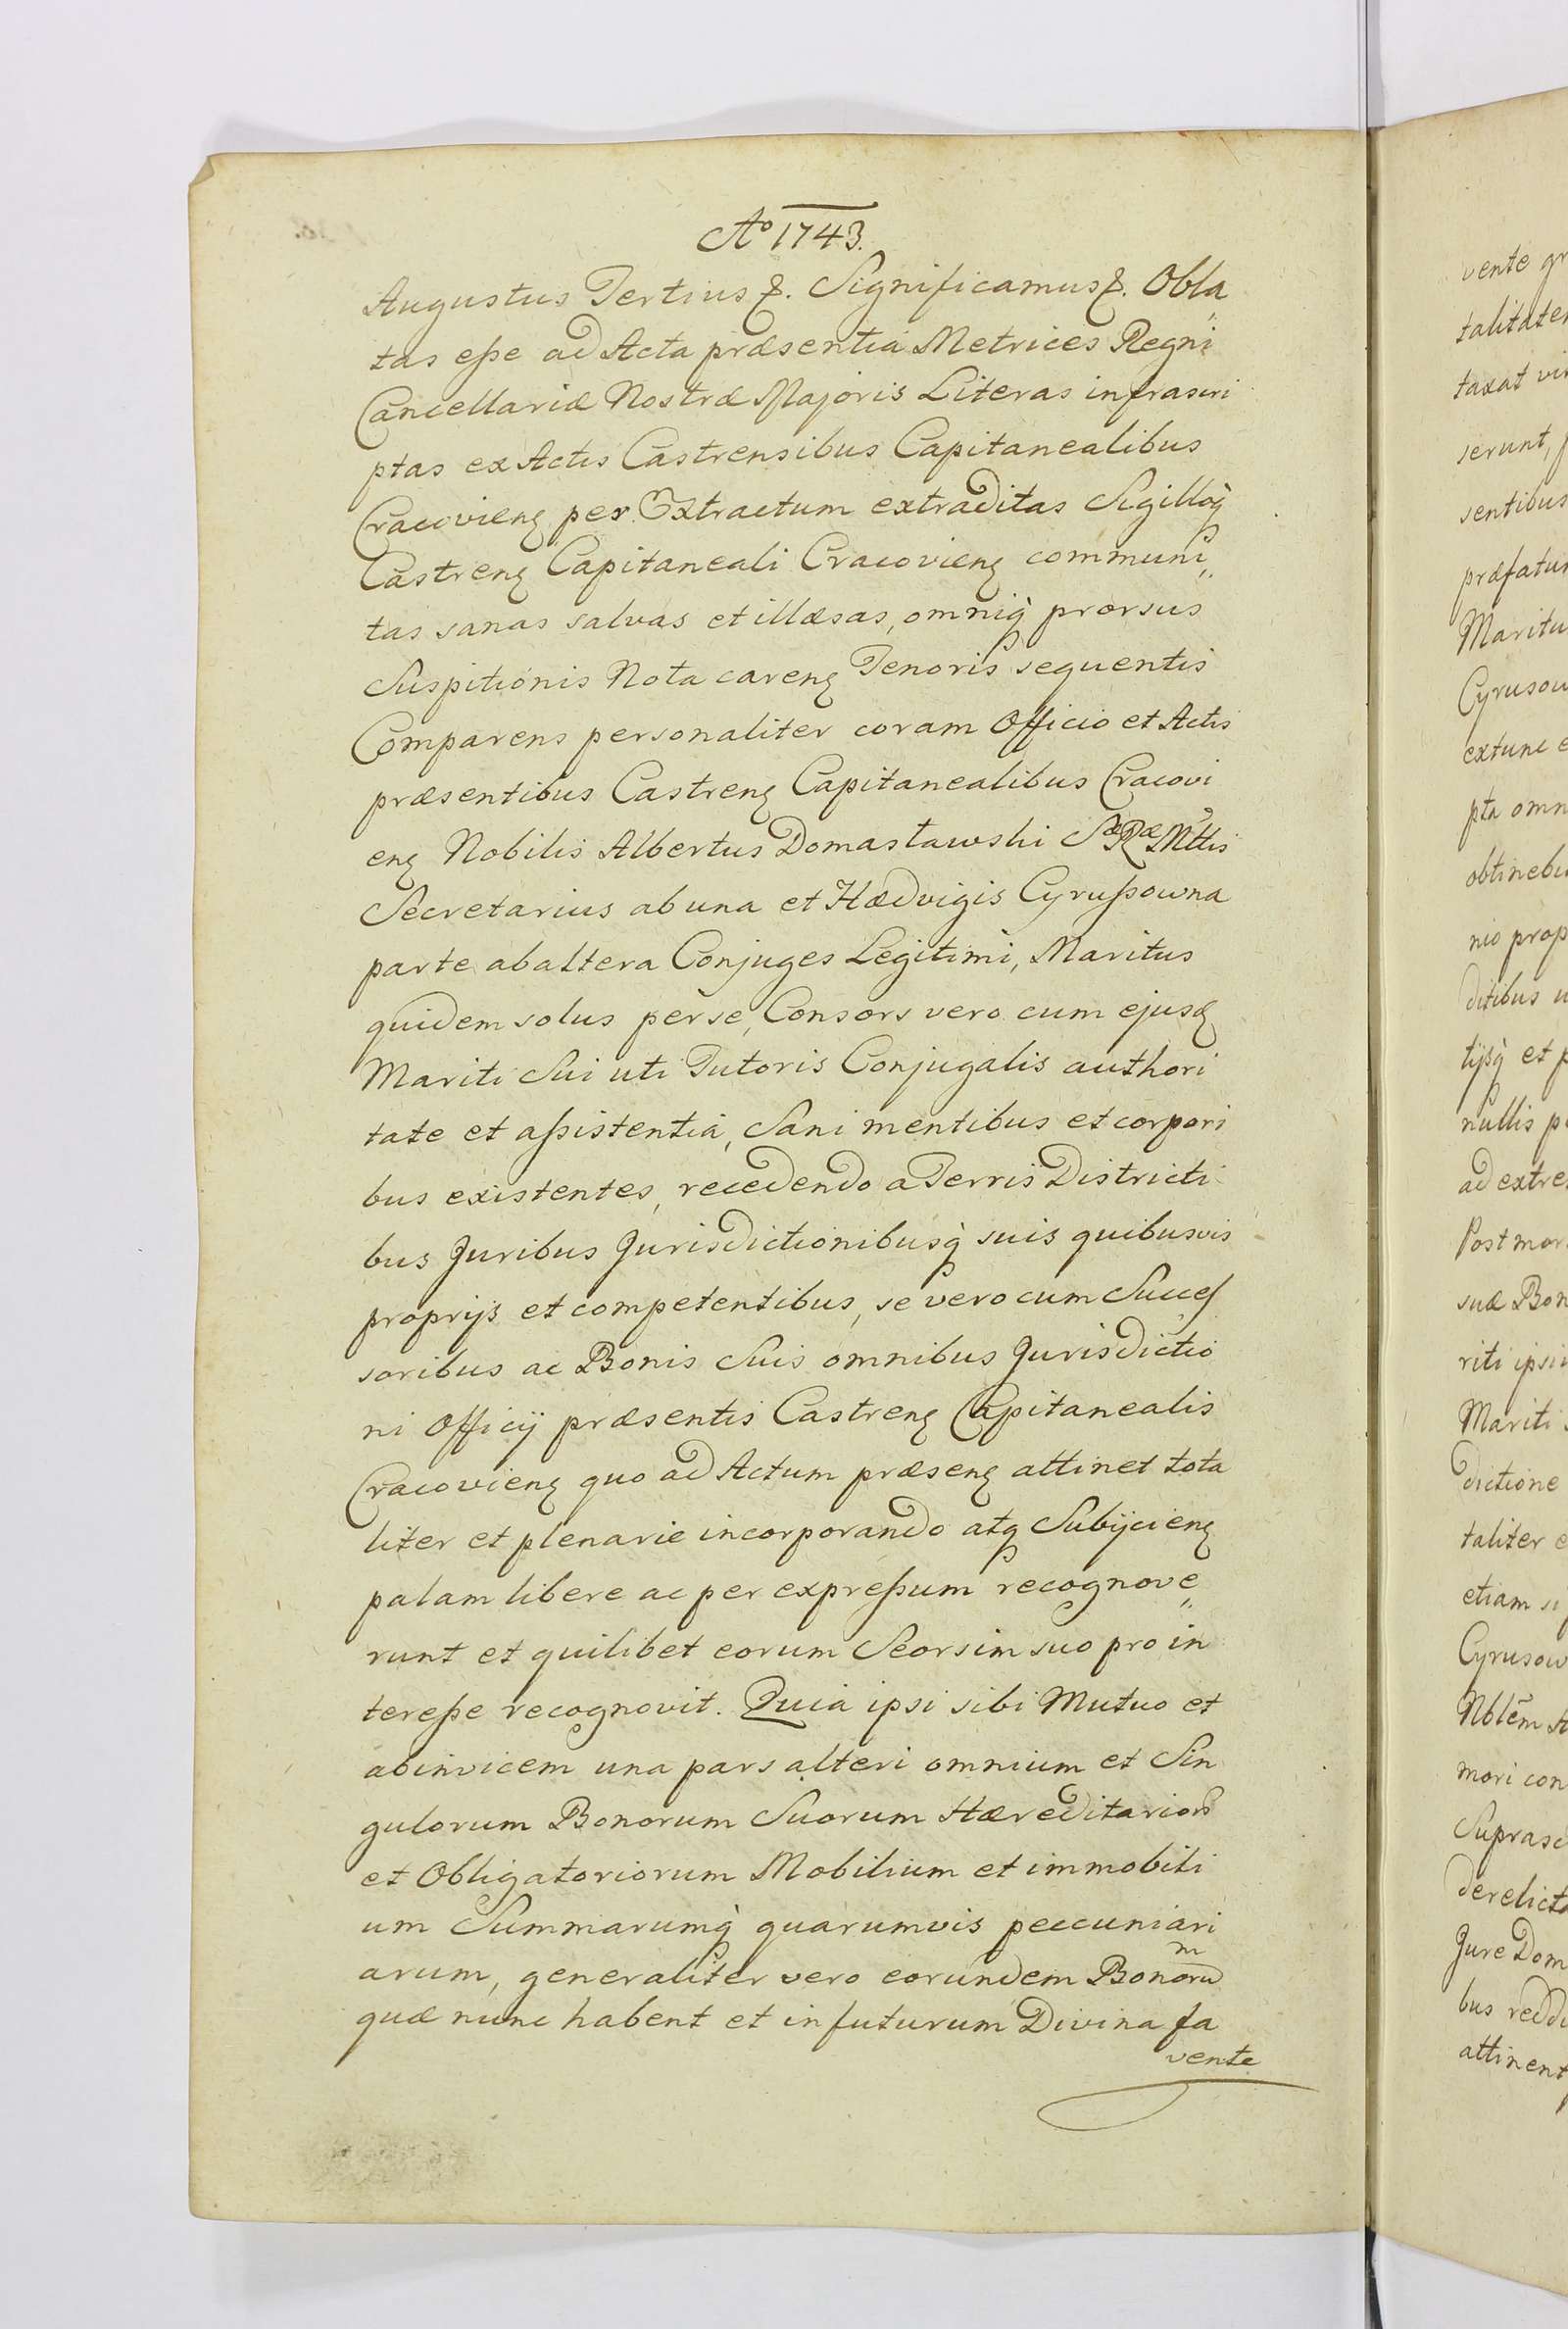 Aº 1743.
Augustus Tertius &. Significamus &. Obla
tas eße ad Acta præsentia Metrices Regni
Cancellariæ Nostræ Majoris Literas infrascri
ptas ex Actis Castrensibus Capitanealibus
Cracovienꝫ per Extractum extraditas Sigilloq̀
Castrenꝫ Capitaneali Cracovienꝫ communi„
tas sanas salvas et illæsas, omniq̀ prorsus
Suspitionis Nota carenꝫ Tenoris sequentis
Comparens personaliter coram Officio et Actis
præsentibus Castrenꝫ Capitanealibus Cracovi
enꝫ Nobilis Albertus Domasławski Sæ Ræ Mttis
Secretarius ab una et Hædvigis Cyrußowna
parte ab altera Conjuges Legitimi, Maritus
quidem solus per se, Consors vero cum ejusꝫ
Mariti Sui uti Tutoris Conjugalis authori
tate et aßistentia, Sani mentibus et corpori
bus existentes, recedendo a Terris Districti
bus Juribus Jurisdictionibusq̀ suis quibusvis
proprijs et competentibus, se vero cum Succes
soribus ac Bonis Suis omnibus Jurisdictio
ni Officij præsentis Castrenꝫ Capitanealis
Cracovienꝫ quo ad Actum præsenꝫ attinet tota
liter et plenarie incorporando atq Subijcienꝫ
palam libere ac per expreßum recognove„
runt et quilibet eorum Seorsim suo pro in
tereße recognovit. Quia ipsi sibi Mutuo et
abinvicem una pars alteri omnium et Sin
gulorum Bonorum Suorum Hæreditarior̃
et Obligatoriorum Mobilium et immobili
um Summarumq̀ quarumvis peccuniari
arum, generaliter vero eorundem Bonorum
quæ nunc habent et in futurum Divina fa
vente
vente gr
talitate
taxat vi
serunt,
sentibus
præfatu
Maritu
Cyrusow
extunc e
pta omn
obtinebu
nio prop
ditibus u
tijsq̀ et p
nullis p
ad extre
Post mor
suæ Bon
riti ipsiu
Mariti s
dictione
taliter e
etiam si
Cyrusow
Nblem A
mori con
Suprasc
derelict
Jure Dom
bus reddi
attinent